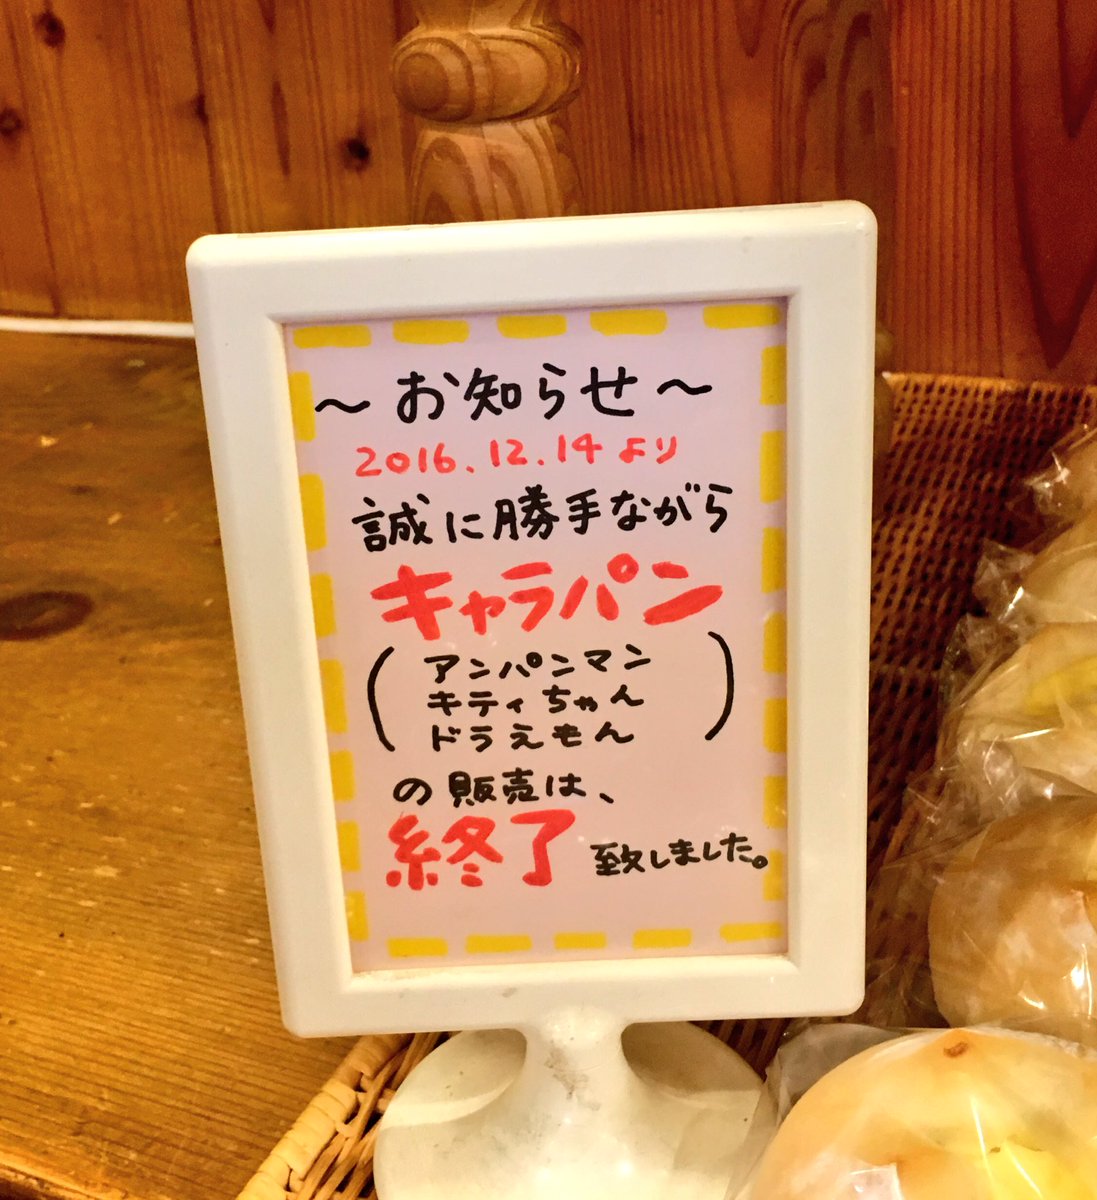 〜お知らせ〜
2016.12.14より
誠に勝手ながら
キャラパン
(アンパンマン
キティちゃん
ドラえもん)
の販売は、
終了致しました。